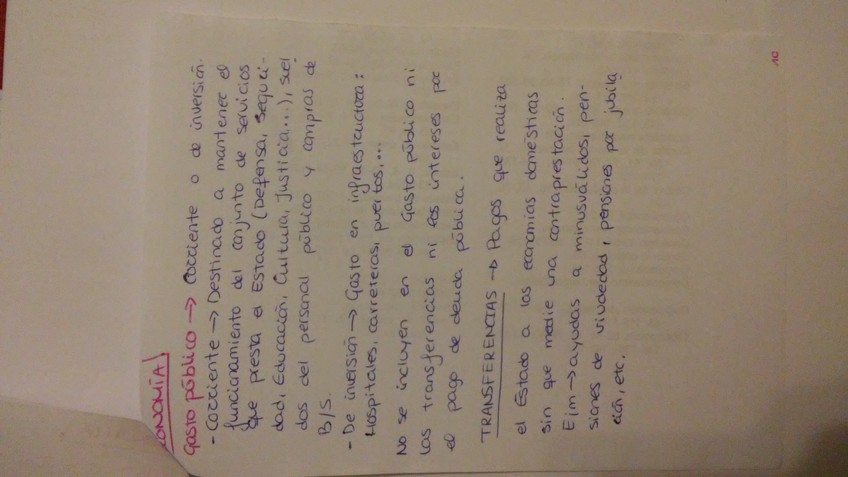 ECONOMÍA
Gasto público → corriente o de inversión.
- Corriente → Destinado a mantener el
funcionamiento del conjunto de servicios
que presta el Estado (Defensa, Seguri-
dad, Educación, Cultura, Justicia...), suel
dos del personal público y compras de
B/S.
- De inversión → Gasto en infraestructura:
Hospitales, carreteras, puertos,...
No se incluyen en el Gasto público ni
las transferencias ni los intereses por
el pago de deuda pública.
TRANSFERENCIAS → Pagos que realiza
el Estado a las economías domésticas
sin que medie una contraprestación.
Ejm → ayudas a minusválidos, pen-
siones de viudedad, pensiones por jubila
ción, etc.
10